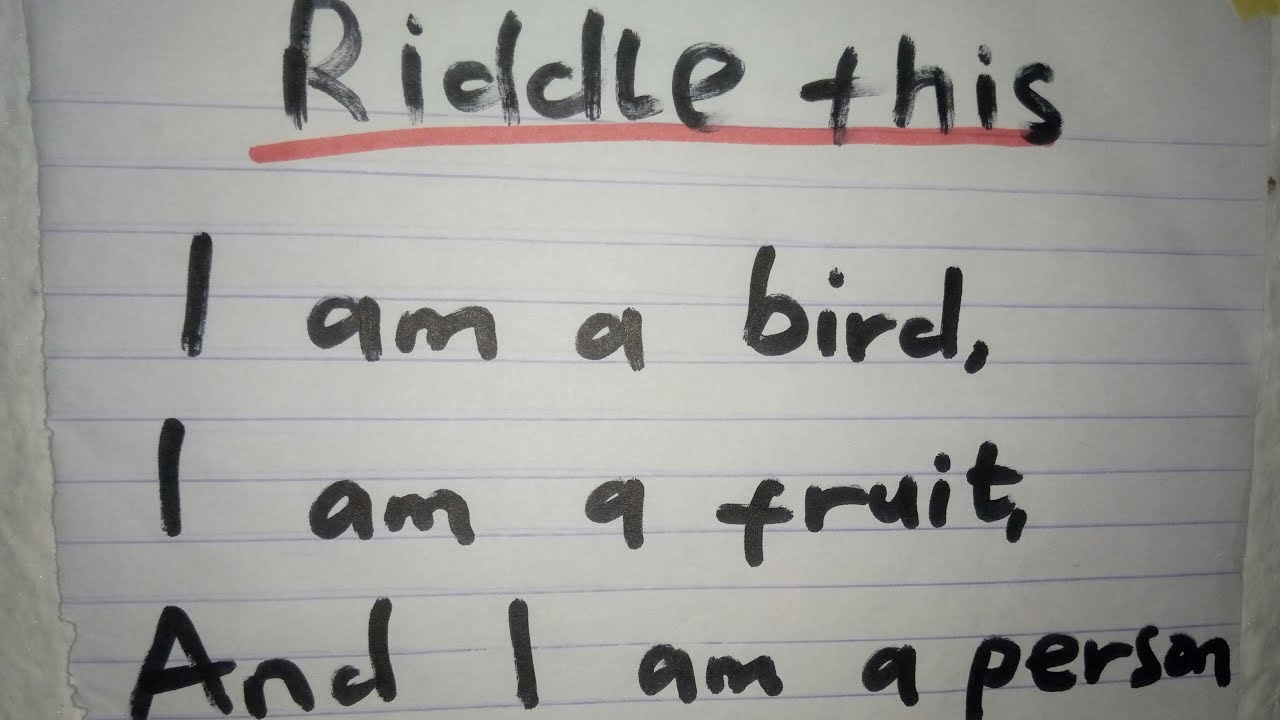 Riddle this
I am a bird,
I am a fruit,
And I am a person